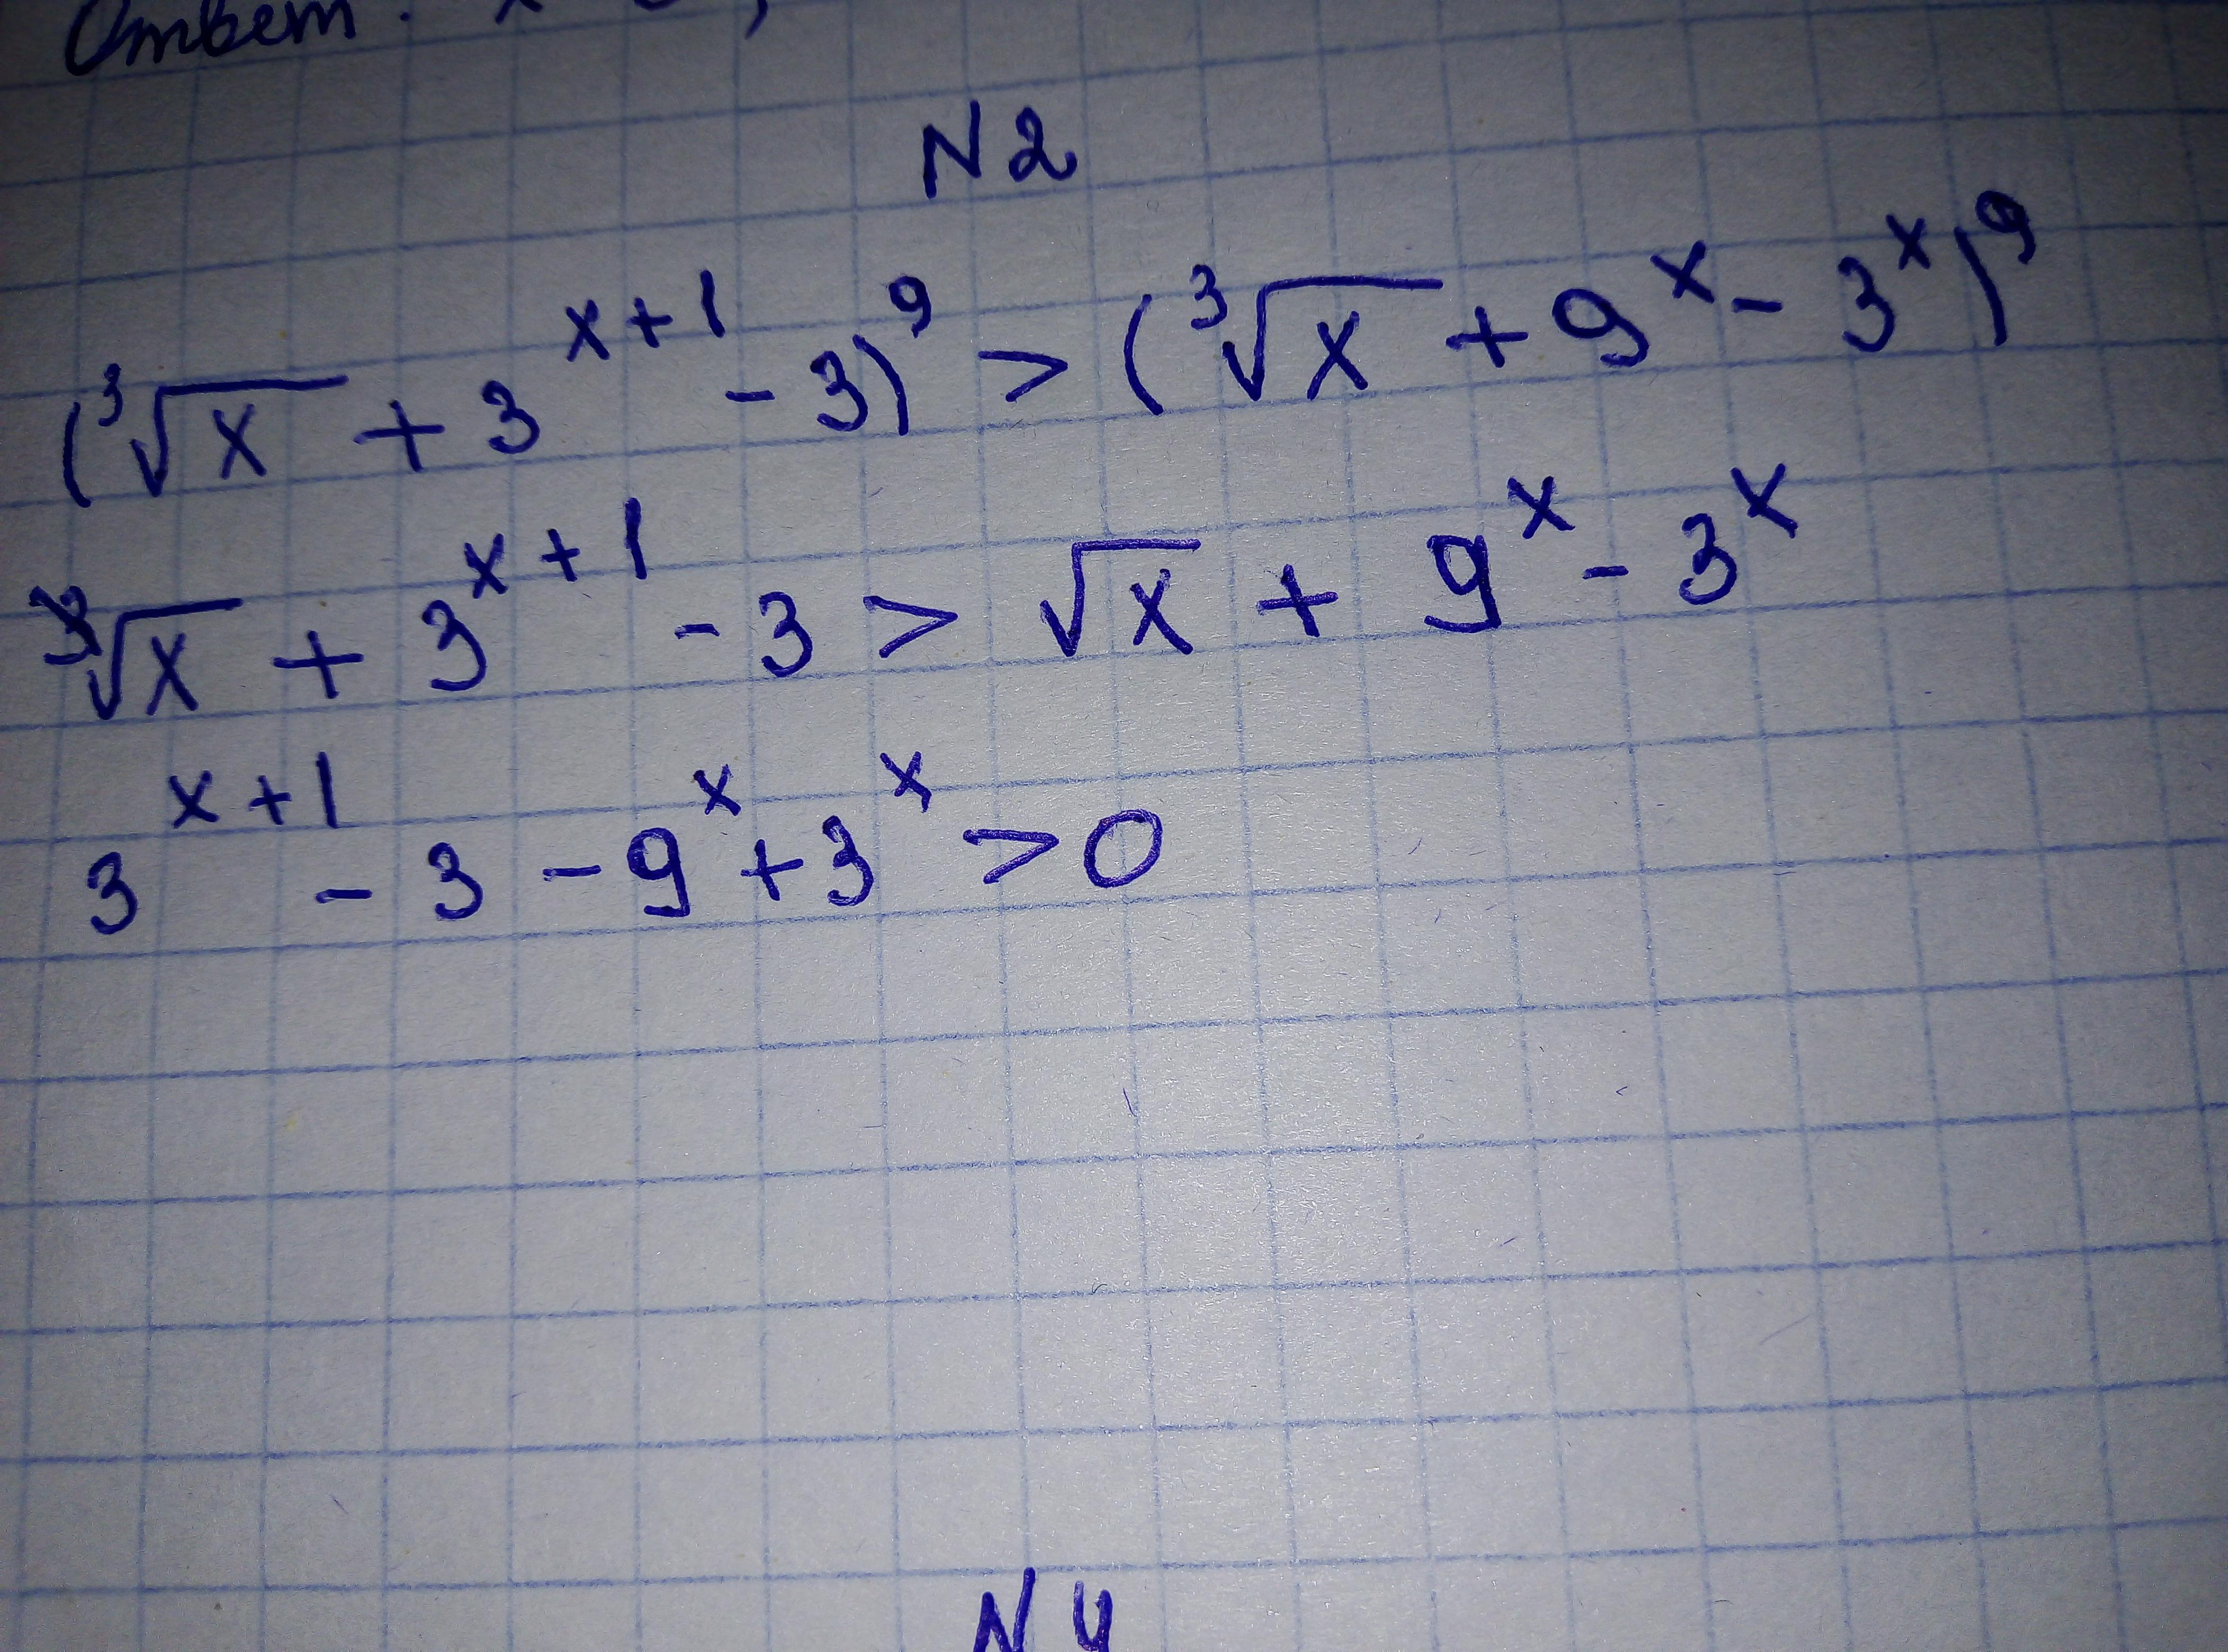 Ответ:
N2
(∛x + 3^(x+1) - 3)^9 > (∛x + 9^x - 3^x)^9
∛x + 3^(x+1) - 3 > √x + 9^x - 3^x
3^(x+1) - 3 - 9^x + 3^x > 0
N4